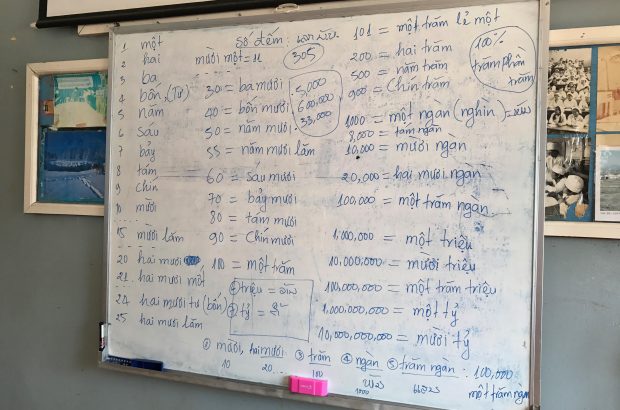 1 một
2 hai
3 ba
4 bốn, (Tư)
5 năm
6 sáu
7 bảy
8 tám
9 chín
10 mười
15 mười lăm
20 hai mươi
21 hai mươi mốt
24 hai mươi tư (bốn)
25 hai mươi lăm
Số đếm:
mười một = 11
305
30 = ba mươi
40 = bốn mươi
50 = năm mươi
55 = năm mươi lăm
60 = sáu mươi
70 = bảy mươi
80 = tám mươi
90 = chín mươi
100 = một trăm
triệu = ລ້ານ
tỷ = ຕື້
5,000
600,000
33,000
101 = một trăm lẻ một
200 = hai trăm
500 = năm trăm
900 = chín trăm
1000 = một ngàn (nghìn)
8,000 = tám ngàn
10,000 = mười ngàn
20,000 = hai mươi ngàn
100,000 = một trăm ngàn
1,000,000 = một triệu
10,000,000 = mười triệu
100,000,000 = một trăm triệu
1,000,000,000 = một tỷ
10,000,000,000 = mười tỷ
100%
trăm phần
trăm
① mười, hai mươi ③ trăm ④ ngàn ⑤ trăm ngàn: 100,000
10 20... 100 1000 một trăm ngàn